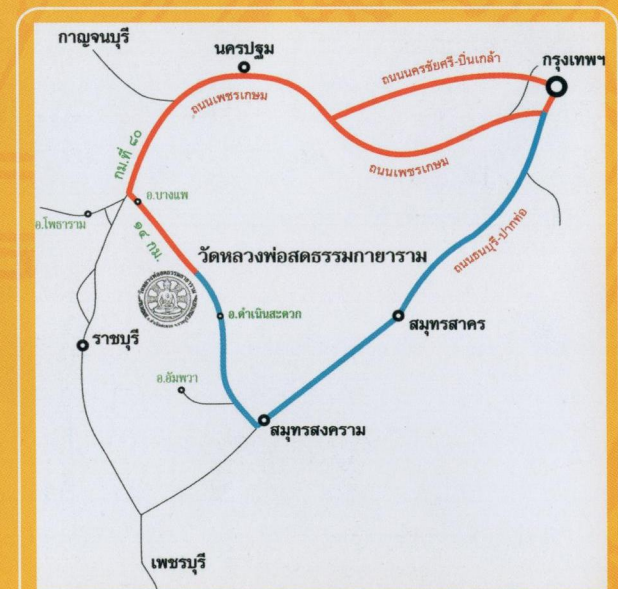 กาญจนบุรี
นครปฐม
กรุงเทพฯ
ถนนนครชัยศรี-ปิ่นเกล้า
ถนนเพชรเกษม
ถนนเพชรเกษม
กม.ที่ ๘๐
อ.บางแพ
อ.โพธาราม
๑๔ กม.
วัดหลวงพ่อสดธรรมกายาราม
ถนนธนบุรี-ปากท่อ
อ.ดำเนินสะดวก
สมุทรสาคร
ราชบุรี
อ.อัมพวา
สมุทรสงคราม
เพชรบุรี